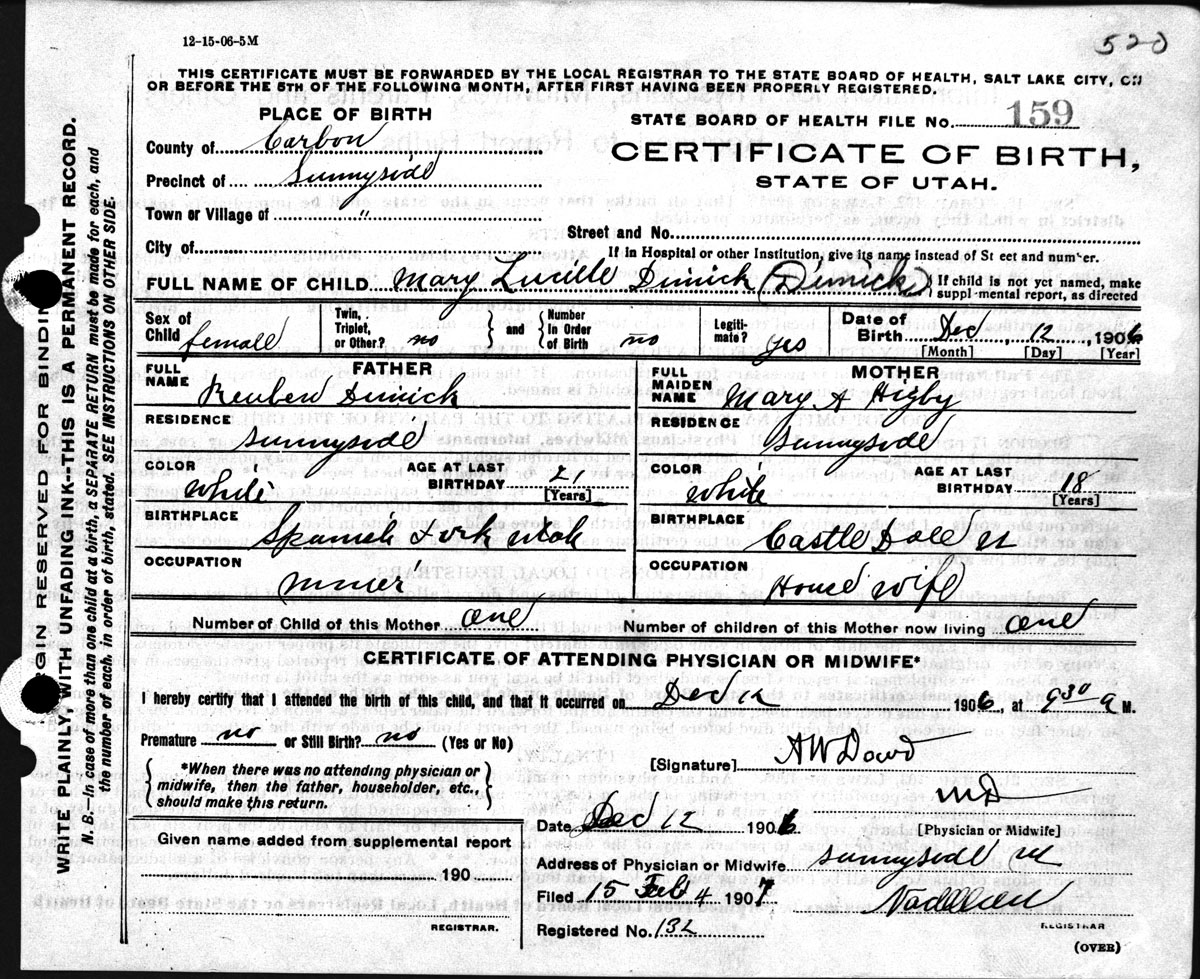 12-15-06-5M
520
THIS CERTIFICATE MUST BE FORWARDED BY THE LOCAL REGISTRAR TO THE STATE BOARD OF HEALTH, SALT LAKE CITY, ON
OR BEFORE THE 5TH OF THE FOLLOWING MONTH, AFTER FIRST HAVING BEEN PROPERLY REGISTERED.
PLACE OF BIRTH
STATE BOARD OF HEALTH FILE No. 159
County of Carbon
CERTIFICATE OF BIRTH,
Precinct of Sunnyside
STATE OF UTAH.
Town or Village of "
Street and No.
City of
If in Hospital or other Institution, give its name instead of St eet and number.
FULL NAME OF CHILD Mary Lucille Dimick (Dimick) } If child is not yet named, make
suppl mental report, as directed
Sex of Child female
Twin, Triplet, or Other? no } and { Number In Order of Birth no
Legiti-mate? yes
Date of Birth Dec 12, 1906
[Month] [Day] [Year]
FATHER
MOTHER
FULL NAME Reuben Dimick
FULL MAIDEN NAME Mary A Higby
RESIDENCE Sunnyside
RESIDENCE Sunnyside
COLOR White AGE AT LAST BIRTHDAY 21 [Years]
COLOR White AGE AT LAST BIRTHDAY 18 [Years]
BIRTHPLACE Spanish Fork Utah
BIRTHPLACE Castle Dale Ut
OCCUPATION Miner
OCCUPATION House wife
Number of Child of this Mother one Number of children of this Mother now living one
CERTIFICATE OF ATTENDING PHYSICIAN OR MIDWIFE*
I hereby certify that I attended the birth of this child, and that it occurred on Dec 12 1906, at 930 A M.
Premature no or Still Birth? no (Yes or No)
[Signature] A W Dowd
{ *When there was no attending physician or
midwife, then the father, householder, etc.,
should make this return. }
MD
Date Dec 12 1906 [Physician or Midwife]
Given name added from supplemental report
Address of Physician or Midwife Sunnyside Ut
190
Filed 15 Feb 4 1907
REGISTRAR.
REGISTRAR
Registered No. 132
(OVER)
MARGIN RESERVED FOR BINDING
WRITE PLAINLY, WITH UNFADING INK--THIS IS A PERMANENT RECORD.
N. B.—In case of more than one child at a birth, a SEPARATE RETURN must be made for each, and
the number of each, in order of birth, stated. SEE INSTRUCTIONS ON OTHER SIDE.